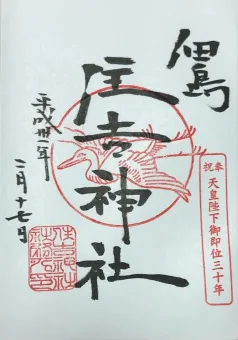 佃島
住吉神社
平成卅一年
二月十七日
奉祝 天皇陛下御即位三十年